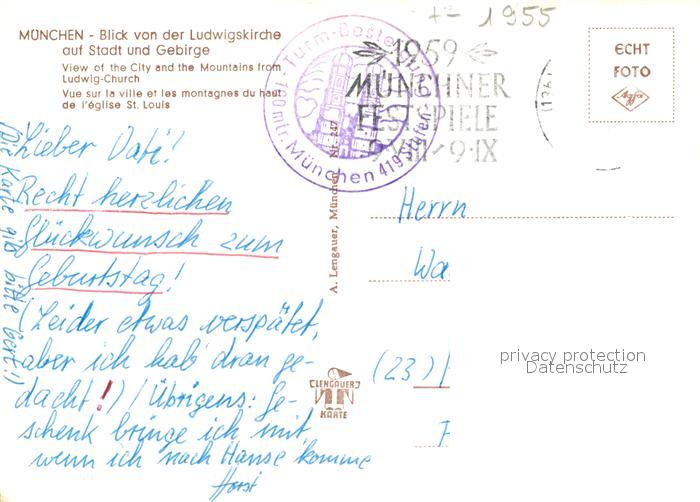 MÜNCHEN - Blick von der Ludwigskirche
auf Stadt und Gebirge
View of the City and the Mountains from
Ludwig-Church
Vue sur la ville et les montagnes du haut
de l'église St. Louis
+= 1955
Turm-Besteigung
100 mtr. München 419 Stufen
1959
MÜNCHNER
FESTSPIELE
9.VIII-9.IX
ECHT
FOTO
Agfa
Lieber Vati!
Recht herzlichen
Glückwunsch zum
Geburtstag!
(Leider etwas verspätet,
aber ich hab' dran ge-
dacht!) / Übrigens: Ge-
schenk bringe ich mit,
wenn ich nach Hause komme
Horst
(Die Karte gib bitte Gert!)
A. Lengauer, München. Nr. 247
CLENGAUERS
KARTE
Herrn
Wa
(23)
privacy protection
Datenschutz